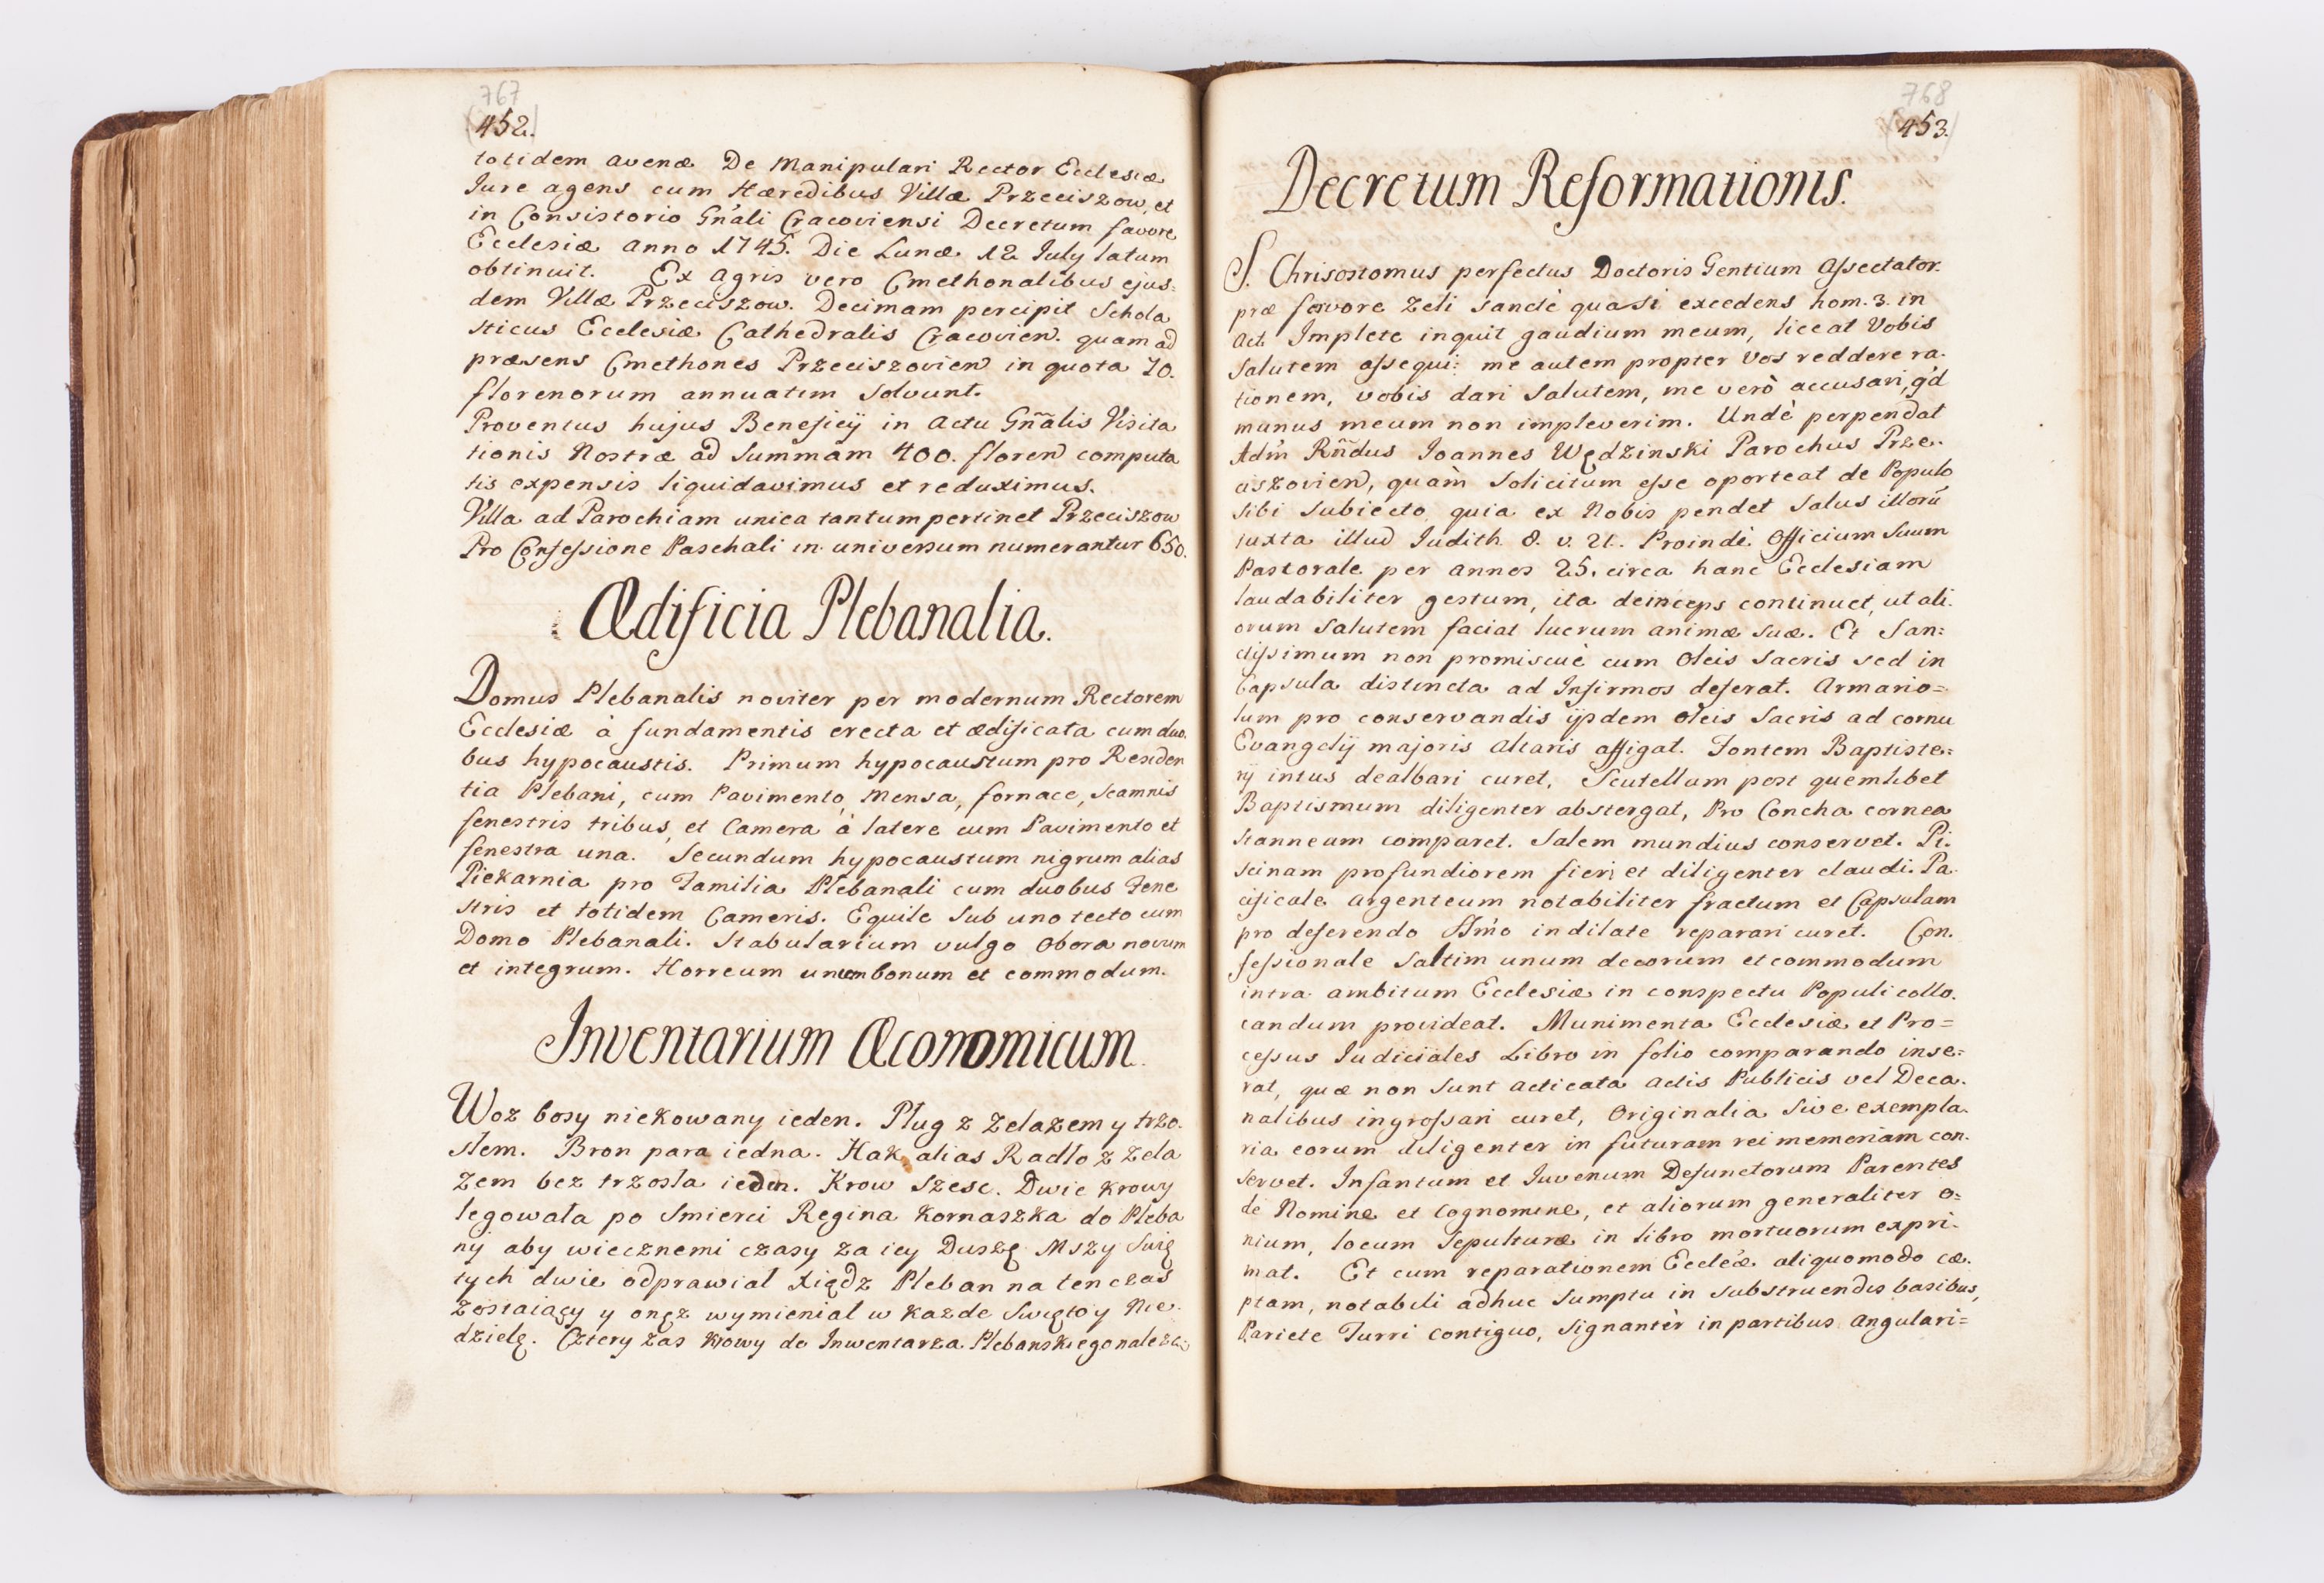 767
452.
totidem avenæ De Manipulari Rector Ecclesiæ
Iure agens cum Hæredibus Villæ Przeciszow, et
in Consistorio Gn̄ali Cracoviensi Decretum favore
Ecclesiæ anno 1745. Die Lunæ 12 July latum
obtinuit. Ex Agris vero Cmethonalibus ejus=
dem Villæ Przeciszow. Decimam percipit Schola
sticus Ecclesiæ Cathedralis Cracovien. quam ad
præsens Cmethones Przeciszovien in quota 70.
florenorum annuatim solvunt.
Proventus hujus Beneficÿ in Actu Gn̄alis Visita
tionis Nostræ ad Summam 400. floren computa
tis expensis liquidavimus et reduximus.
Villa ad Parochiam unica tantum pertinet Przeciszow
Pro Confessione Paschali in universum numerantur 650.
Ædificia Plebanalia.
Domus Plebanalis noviter per modernum Rectorem
Ecclesiæ à fundamentis erecta et ædificata cum duo.
bus hypocaustis. Primum hypocaustum pro Residen
tia Plebani, cum Pavimento, Mensa, fornace, scamnis
fenestris tribus, et Camera à latere cum Pavimento et
fenestra una. Secundum hypocaustum nigrum alias
Piekarnia pro Familia Plebanali cum duobus Fene
stris et totidem Cameris. Equile Sub uno tecto cum
Domo Plebanali. Stabularium vulgo Obora novum
et integrum. Horreum unum bonum et commodum.
Inventarium Œconomicum.
Woz bosy niekowany ieden. Pług z Zelazem y trzo.
słem. Bron para iedna. Hak alias Radło z Zela
Zem bez trzosła ieden. Krow Szesc. Dwie Krowy
legowała po Smierci Regina Kornaszka do Pleba
nÿ aby wiecznemi czasy Za iey Duszę Mszy Swię
tych dwie odprawiał Xiądz Pleban na ten czas
Zostaiący y onęz wymieniał w Kazde Swięto y Nie.
dzielę. Cztery Zas Krowy do Inwentarza Plebanskiego nalezą.
768
453.
Decretum Reformationis.
S. Chrisostomus perfectus Doctoris Gentium Assectator.
præ fervore Zeli Sanctè quasi excedens hom. 3. in
Act. Implete inquit gaudium meum, liceat Vobis
Salutem assequi: me autem propter Vos reddere ra.
tionem, vobis dari Salutem, me verò accusari, q'd
munus meum non impleverim. Undè perpendat
Adm̃ Rñdus Ioannes Wędzinski Parochus Prze.
ciszovien, quàm Solicitum esse oporteat de Populo
Sibi Subiecto, quia ex Nobis pendet Salus illorū
juxta illud Iudith. 8. v. 21. Proindè Officium Suum
Pastorale per annos 25. circa hanc Ecclesiam
laudabiliter gestum, ita deinceps continuet, ut ali.
orum Salutem faciat lucrum animæ Suæ. Et San=
ctissimum non promiscuè cum Oleis Sacris sed in
Capsula distincta ad Infirmos deferat. Armario=
lum pro conservandis ijsdem oleis Sacris ad cornu
Evangelÿ majoris Altaris affigat. Fontem Baptiste=
rÿ intus dealbari curet, Scutellam post quemlibet
Baptismum diligenter abstergat, Pro Concha cornea
Stanneam comparet. Salem mundius conservet. Pi.
scinam profundiorem fieri et diligenter claudi. Pa.
cificale argenteum notabiliter fractum et Capsulam
pro deferendo SSm̃o indilate reparari curet. Con.
fessionale Saltim unum decorum et commodum
intra ambitum Ecclesiæ in conspectu Populi collo.
candum provideat. Munimenta Ecclesiæ et Pro=
cessus Iudiciales Libro in folio comparando inse=
rat, quæ non Sunt acticata actis Publicis vel Deca.
nalibus ingrossari curet, Originalia Sive exempla.
ria eorum diligenter in futuram rei memoriam con.
servet. Infantum et Iuvenum Defunctorum Parentes
de Nomine et Cognomine, et aliorum generaliter o=
mnium, locum Sepulturæ in libro mortuorum expri.
mat. Et cum reparationem Eccl'æ aliquomodo cæ.
ptam, notabili adhuc Sumptu in Substruendis basibus,
Pariete Turri contiguo, Signantèr in partibus angulari=